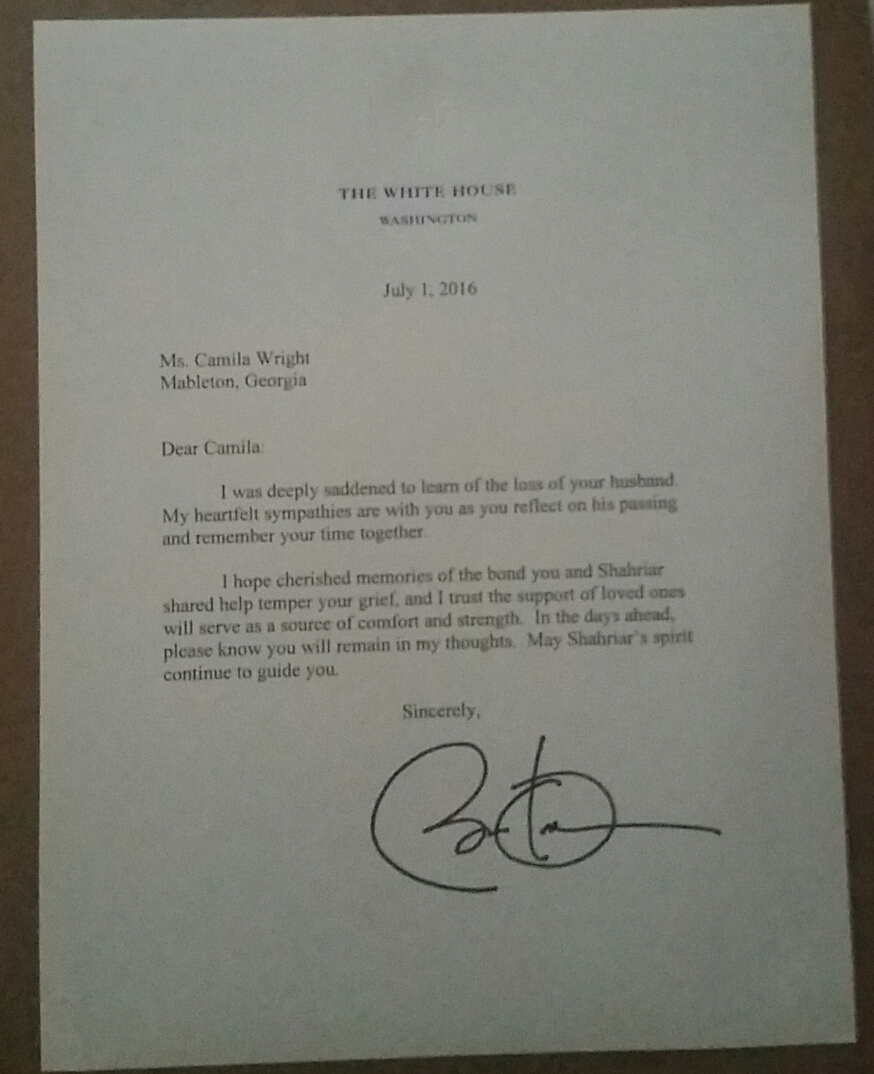 THE WHITE HOUSE
WASHINGTON
July 1, 2016
Ms. Camila Wright
Mableton, Georgia
Dear Camila:
I was deeply saddened to learn of the loss of your husband.
My heartfelt sympathies are with you as you reflect on his passing
and remember your time together.
I hope cherished memories of the bond you and Shahriar
shared help temper your grief, and I trust the support of loved ones
will serve as a source of comfort and strength. In the days ahead,
please know you will remain in my thoughts. May Shahriar's spirit
continue to guide you.
Sincerely,